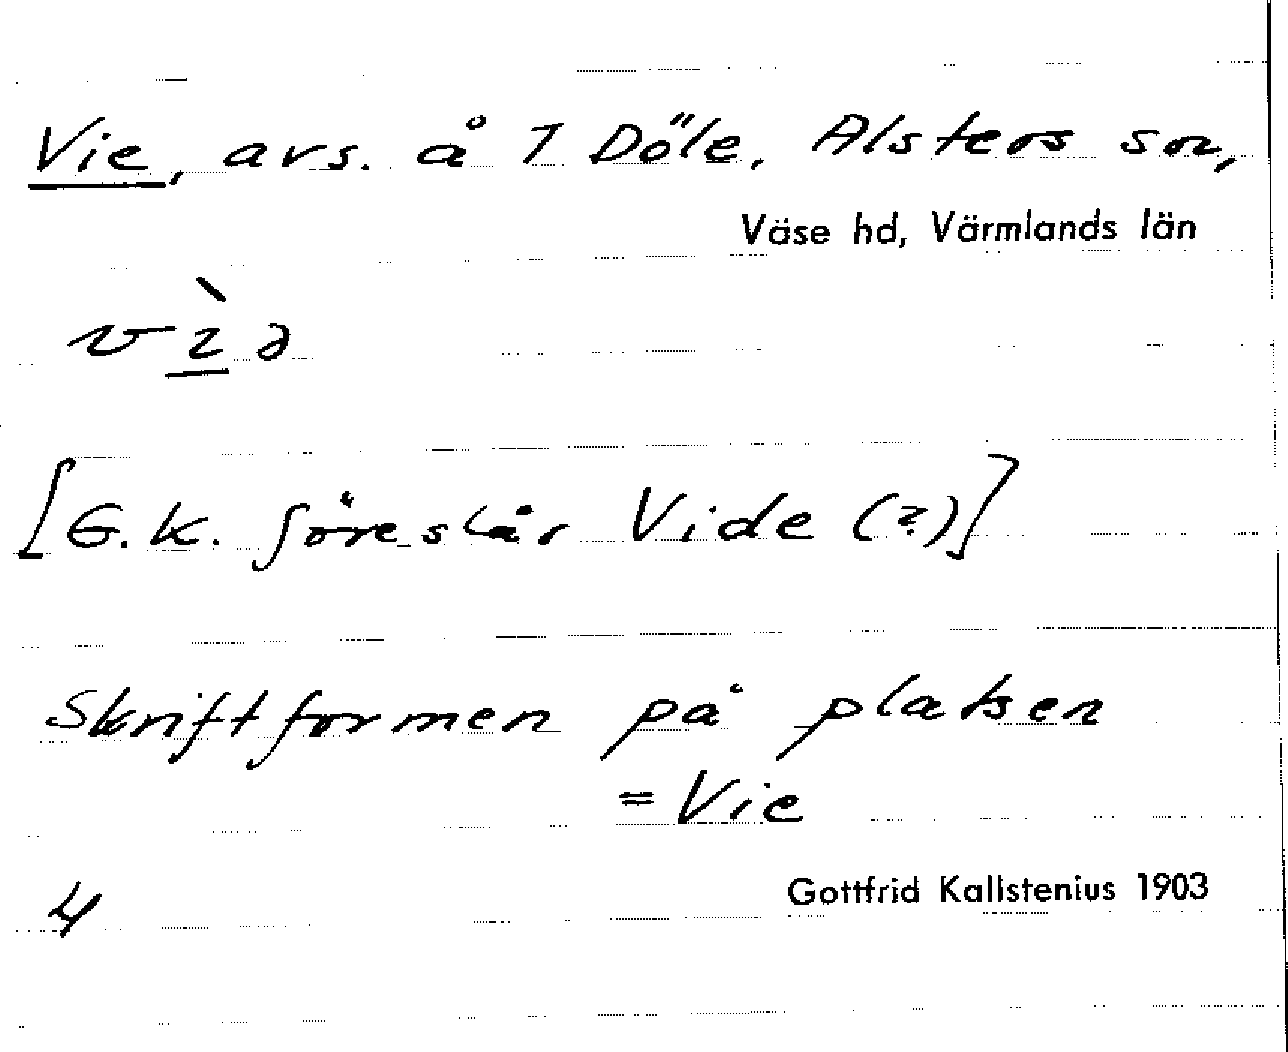 Vie, avs. å 1 Döle, Alsters sn,
Väse hd, Värmlands län
vìə
[G.K. föreslår Vide (?)]
Skriftformen på platsen
= Vie
4
Gottfrid Kallstenius 1903